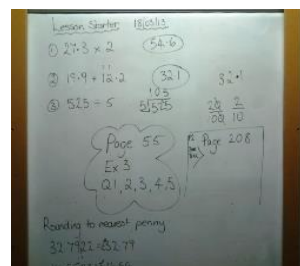 Lesson Starter 18/03/13
① 27.3 x 2 54.6
② 19.9 + 12.2 32.1
③ 525 ÷ 5
105
5 525
32.1
20 2
10
Page 55
Ex 3
Q1, 2, 3, 4, 5
Page 208
Rounding to nearest penny
32.7922 = £32.79